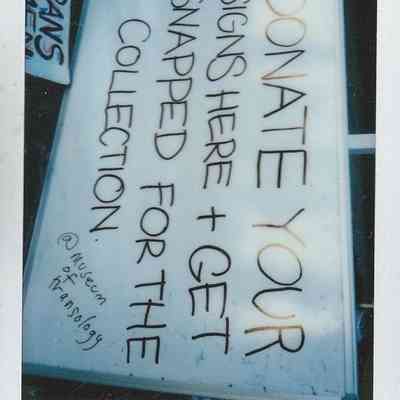 DONATE YOUR
SIGNS HERE + GET
SNAPPED FOR THE
COLLECTION.
@museum
of
transology